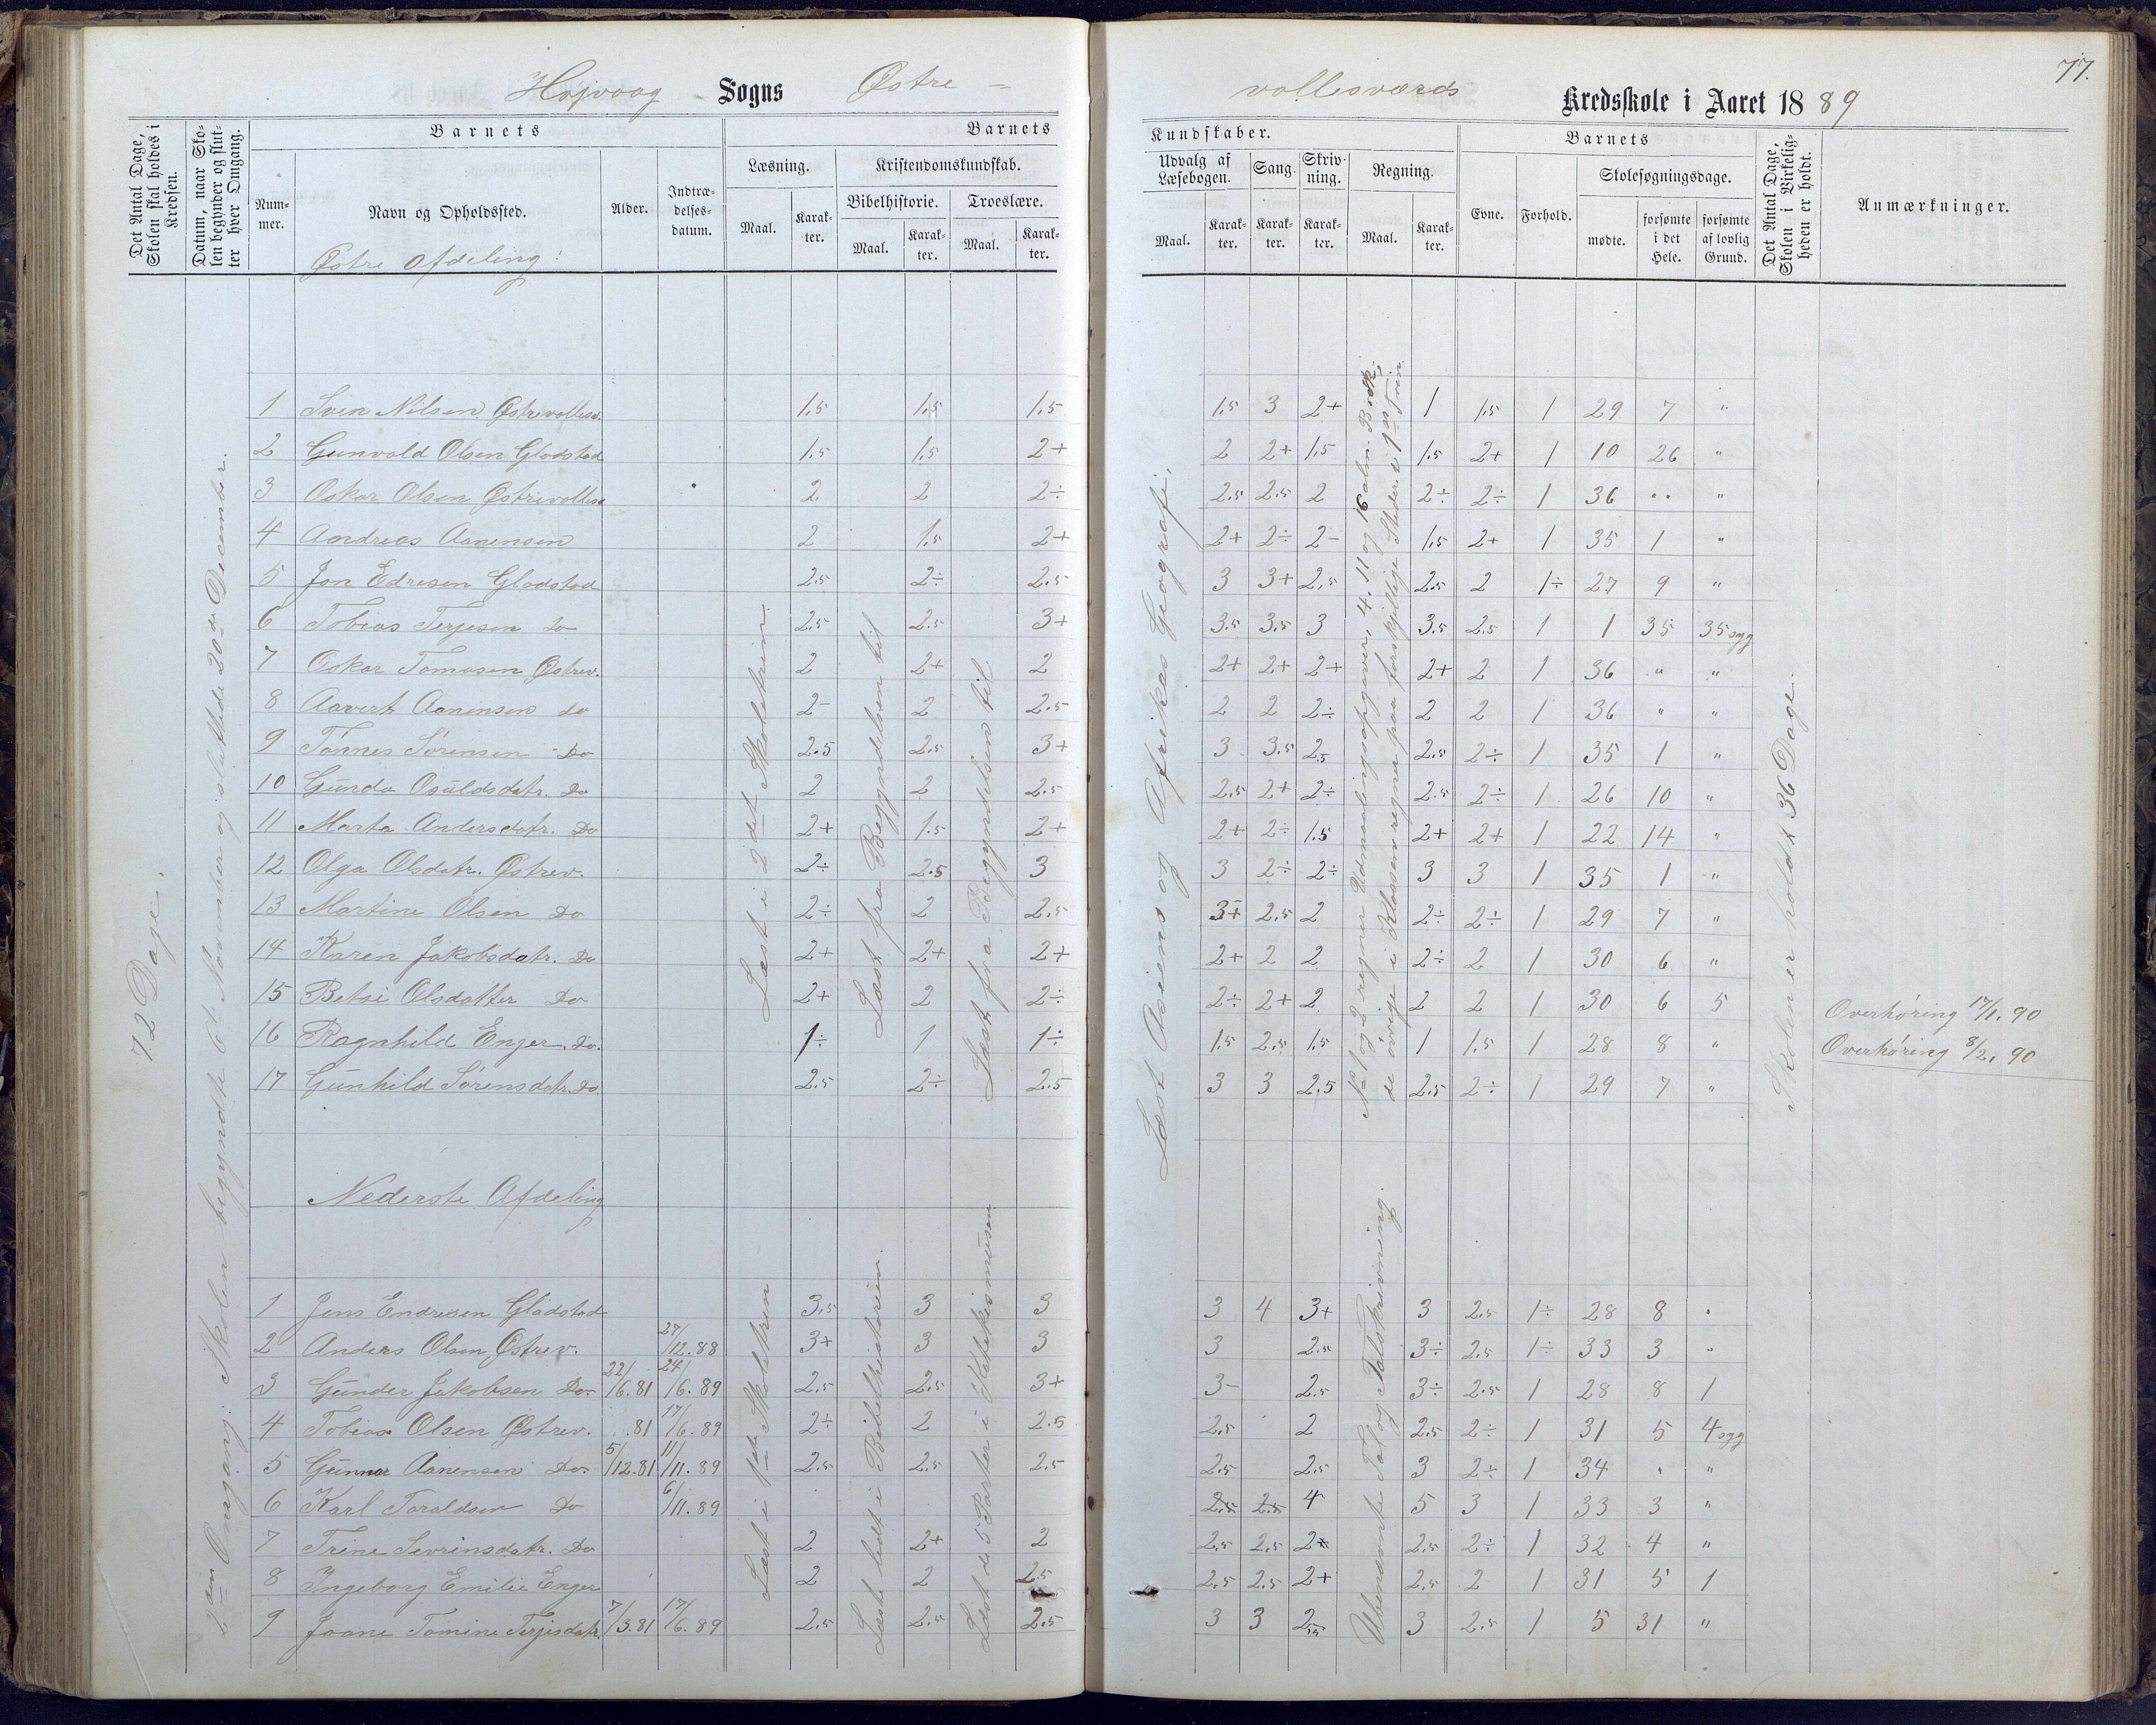 77.
Højvaag Sogns Østre – vollesværds Kredsskole i Aaret 1889
Det Antal Dage, Skolen skal holdes i Kredsen.
Datum, naar Skolen begynder og slutter hver Omgang.
Barnets
Barnets Kundskaber.
Barnets
Nummer.
Navn og Opholdssted.
Alder.
Indtrædelsesdatum.
Læsning.
Maal.
Karakter.
Kristendomskundskab.
Bibelhistorie.
Maal.
Karakter.
Troeslære.
Maal.
Karakter.
Udvalg af Læsebogen.
Maal.
Karakter.
Sang.
Karakter.
Skrivning.
Karakter.
Regning.
Maal.
Karakter.
Evne.
Forhold.
Skolesøgningsdage.
mødte.
forsømte i det Hele.
forsømte af lovlig Grund.
Det Antal Dage, Skolen i Virkeligheden er holdt.
Anmærkninger.
Østre Afdeling:
72 Dage.
2den Omgang: Skolen begyndte 6te November og sluttede 20de December.
Læst i 2det Skoletrin.
Læst fra Begyndelsen til
Læst fra Begyndelsen til
Læst Asiens og Afrikas Geografi.
No 1 og 2 regner Udmaalingsopgaver, 4, 11 og 16 alm. Brøk,
de øvrige i Klassen regner paa forskjellige Steder i 1ste Trin.
Skolen er holdt 36 Dage.
1 Sven Nilsen Østrevollesv. 1,5 1,5 1,5 1,5 3 2+ 1 1,5 1 29 7 "
2 Gunvald Olsen Glodstad 1,5 1,5 2+ 2 2+ 1,5 1,5 2+ 1 10 26 "
3 Oskar Olsen Østrevollesv 2 2 2÷ 2.5 2.5 2 2÷ 2÷ 1 36 " "
4 Andreas Aanensen 2 1,5 2+ 2+ 2÷ 2- 1,5 2+ 1 35 1 "
5 Jon Edresen Glodstad 2.5 2÷ 2.5 3 3+ 2,5 2.5 2 1÷ 27 9 "
6 Tobias Terjesen Do 2.5 2.5 3+ 3.5 3.5 3 3.5 2.5 1 1 35 35 syg
7 Oskar Tomasen Østrev. 2 2+ 2 2+ 2+ 2+ 2+ 2 1 36 " "
8 Aavert Aanensen do 2- 2 2.5 2 2 2÷ 2 2 1 36 " "
9 Tønnes Sørensen Do 2.5 2.5 3+ 3 3.5 2.5 2.5 2÷ 1 35 1 "
10 Gunda Osuldsdatr. Do 2 2 2.5 2.5 2+ 2÷ 2.5 2÷ 1 26 10 "
11 Marta Andersdatr. Do 2+ 1.5 2+ 2+ 2÷ 1.5 2+ 2+ 1 22 14 "
12 Olga Olsdatr. Østrev. 2÷ 2.5 3 3 2÷ 2÷ 3 3 1 35 1 "
13 Martine Olsen Do 2÷ 2 2.5 3+ 2.5 2 2÷ 2÷ 1 29 7 "
14 Karen Jakobsdatr. Do 2+ 2+ 2+ 2+ 2 2 2÷ 2 1 30 6 "
15 Betsi Olsdatter Do 2+ 2 2÷ 2÷ 2+ 2 2 2 1 30 6 5 Overhøring 17/1. 90
16 Ragnhild Enger. Do. 1÷ 1 1÷ 1.5 2.5 1.5 1 1.5 1 28 8 " Overhøring 8/2. 90
17 Gunhild Sørensdatr. Do. 2.5 2÷ 2.5 3 3 2.5 2.5 2÷ 1 29 7 "
Nederste Afdeling
Læst i 1ste Skoletrin
Læste lidt i Bibelhistorien.
Læst de 5 Parter i Katekismusen
Ubenævnte Tal og Talskrivning.
1 Jens Endresen Gladstad 3,5 3 3 3 4 3+ 3 2.5 1÷ 28 8 "
2 Anders Olsen Østrev. 27/12.88 3+ 3 3 3 2.5 3÷ 2.5 1÷ 33 3 "
3 Gunder Jakobsen Do. 22/6.81 24/6.89 2.5 2.5 3+ 3- 2.5 3÷ 2.5 1 28 8 1
4 Tobias Olsen Østrev. .81 17/6.89 2÷ 2 2.5 2.5 2 2.5 2÷ 1 31 5 4 syg
5 Gunnar Aanensen Do. 5/12.81 11/11.89 2.5 2.5 2.5 2.5 2.5 3 2÷ 1 34 " "
6 Karl Taraldsen Do 6/11.89 2.5 2.5 4 5 3 1 33 3 "
7 Trine Sevrinsdatr. Do 2 2+ 2 2.5 2,5 2+ 2.5 2÷ 1 32 4 "
8 Ingeborg Emilie Enger 2 2 2.5 2.5 2.5 2+ 2.5 2 1 31 5 1
9 Joane Tomine Terjesdatr. 7/3.81 17/6.89 2.5 2.5 2.5 3 3 2.5 3 2.5 1 5 31 "